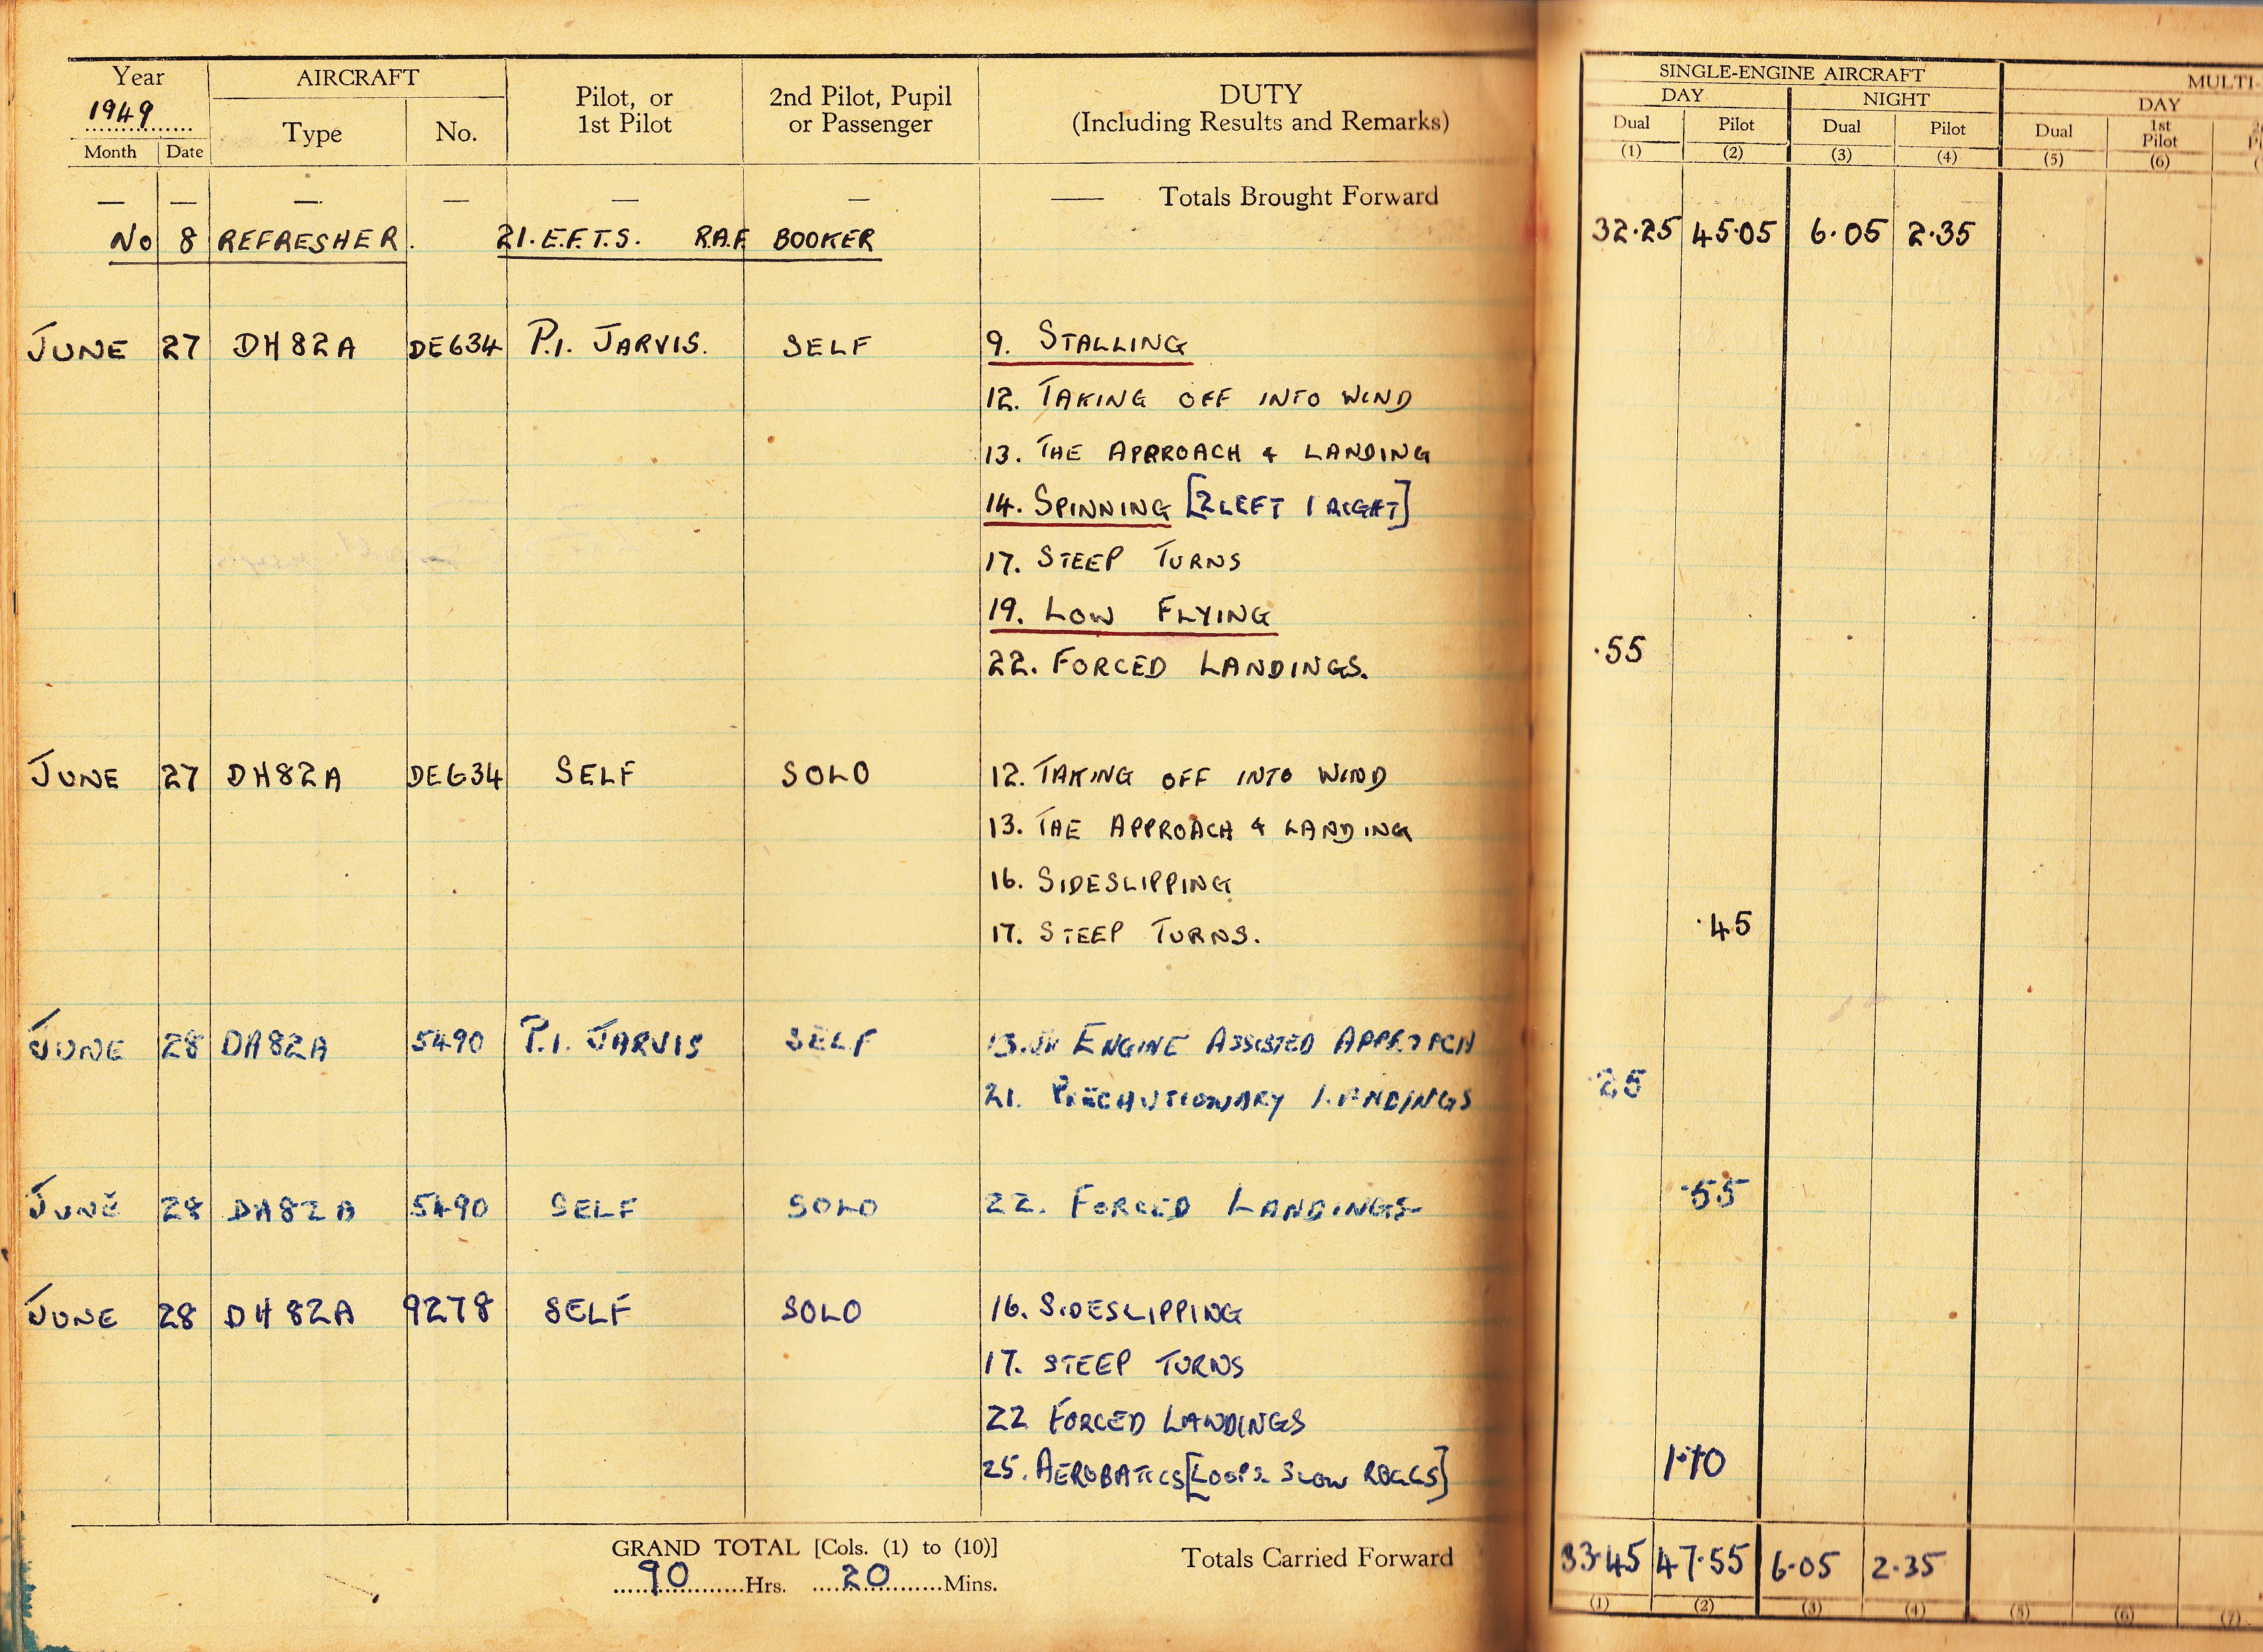 Year AIRCRAFT Pilot, or 1st Pilot 2nd Pilot, Pupil or Passenger DUTY (Including Results and Remarks) SINGLE-ENGINE AIRCRAFT MULTI-
1949 DAY NIGHT DAY
Month Date Type No. Dual Pilot Dual Pilot Dual 1st Pilot
(1) (2) (3) (4) (5) (6)
— — — — — — — Totals Brought Forward
No 8 REFRESHER. 21. E.F.T.S. R.A.F. BOOKER 32.25 45.05 6.05 2.35
JUNE 27 DH82A DE634 P.I. JARVIS. SELF 9. STALLING
12. TAKING OFF INTO WIND
13. THE APPROACH & LANDING
14. SPINNING [2 LEFT 1 RIGHT]
17. STEEP TURNS
19. LOW FLYING
.55
22. FORCED LANDINGS.
JUNE 27 DH82A DE634 SELF SOLO 12. TAKING OFF INTO WIND
13. THE APPROACH & LANDING
16. SIDESLIPPING
17. STEEP TURNS. .45
JUNE 28 DH82A 5490 P.I. JARVIS SELF 13. ENGINE ASSISTED APPROACH
21. PRECAUTIONARY LANDINGS .25
JUNE 28 DH82A 5490 SELF SOLO 22. FORCED LANDINGS .55
JUNE 28 DH82A 9278 SELF SOLO 16. SIDESLIPPING
17. STEEP TURNS
22 FORCED LANDINGS
25. AEROBATICS [LOOPS. SLOW ROLLS] 1.10
GRAND TOTAL [Cols. (1) to (10)] Totals Carried Forward 33.45 47.55 6.05 2.35
90 Hrs. 20 Mins.
(1) (2) (3) (4) (5) (6) (7)